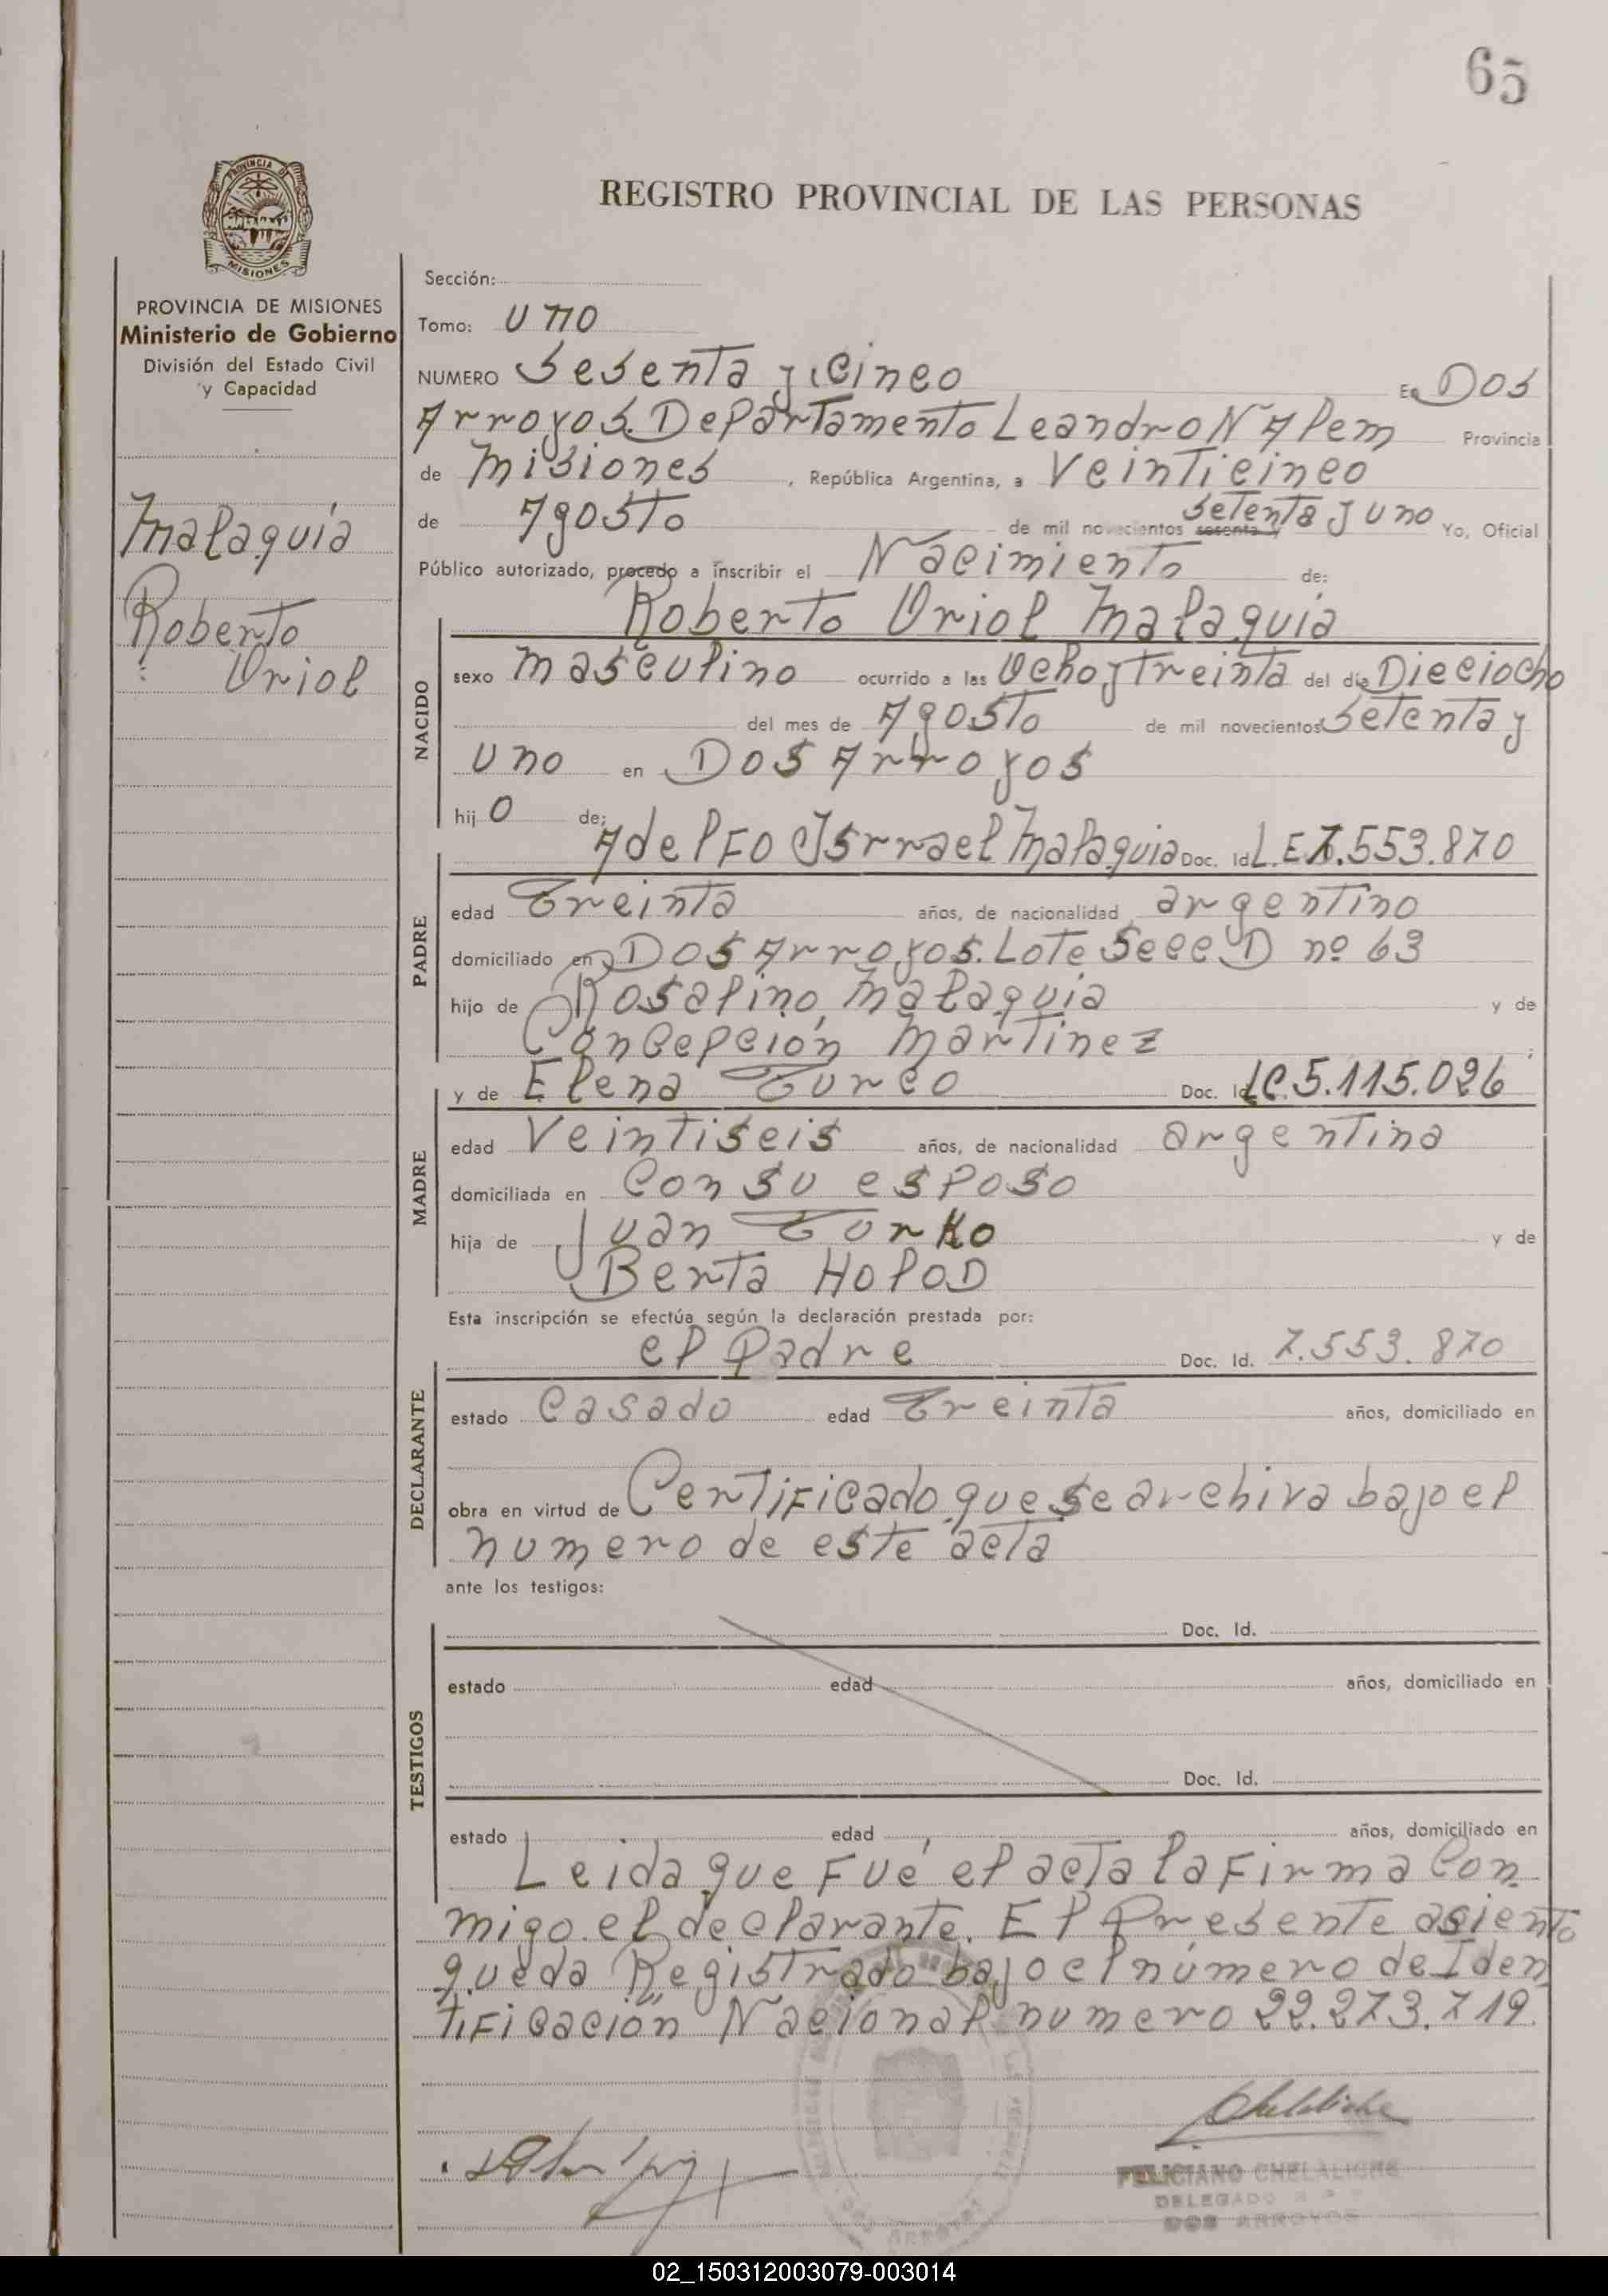 65
REGISTRO PROVINCIAL DE LAS PERSONAS
PROVINCIA DE
MISIONES
PROVINCIA DE MISIONES
Ministerio de Gobierno
División del Estado Civil
y Capacidad
Malaquia
Roberto
Uriol
Sección:
Tomo: uno
NUMERO Sesenta y cinco En Dos
Arroyos. Departamento Leandro N Alem Provincia
de Misiones, República Argentina, a Veinticinco
de Agosto de mil novecientos sesenta y setenta y uno Yo, Oficial
Público autorizado, procedo a inscribir el Nacimiento de:
Roberto Uriol Malaquia
NACIDO
sexo masculino ocurrido a las Ocho y treinta del día Dieciocho
del mes de Agosto de mil novecientos Setenta y
uno en Dos Arroyos
hijo de:
Adelfo Isrrael Malaquia Doc. Id L.E 7.553.870
PADRE
edad Treinta años, de nacionalidad argentino
domiciliado en Dos Arroyos. Lote Secc D nº 63
hijo de Rosalino Malaquia y de
Concepción Martinez ;
y de Elena Turco Doc. Id LC. 5.115.026
MADRE
edad Veintiseis años, de nacionalidad argentina
domiciliada en Con su esposo
hija de Juan Turko y de
Berta Holod
Esta inscripción se efectúa según la declaración prestada por:
el Padre Doc. Id. 7.553.870
DECLARANTE
estado Casado edad Treinta años, domiciliado en
obra en virtud de Certificado que se archiva bajo el
numero de este acta
ante los testigos:
TESTIGOS
Doc. Id.
estado edad años, domiciliado en
Doc. Id.
estado edad años, domiciliado en
Leida que Fué el acta la Firma Con
migo el declarante. El Presente asiento
queda Registrado bajo el número de Iden
tificación Nacional numero 22.273.719.
FELICIANO CHELALICHE
DELEGADO
DOS ARROYOS
02_150312003079-003014